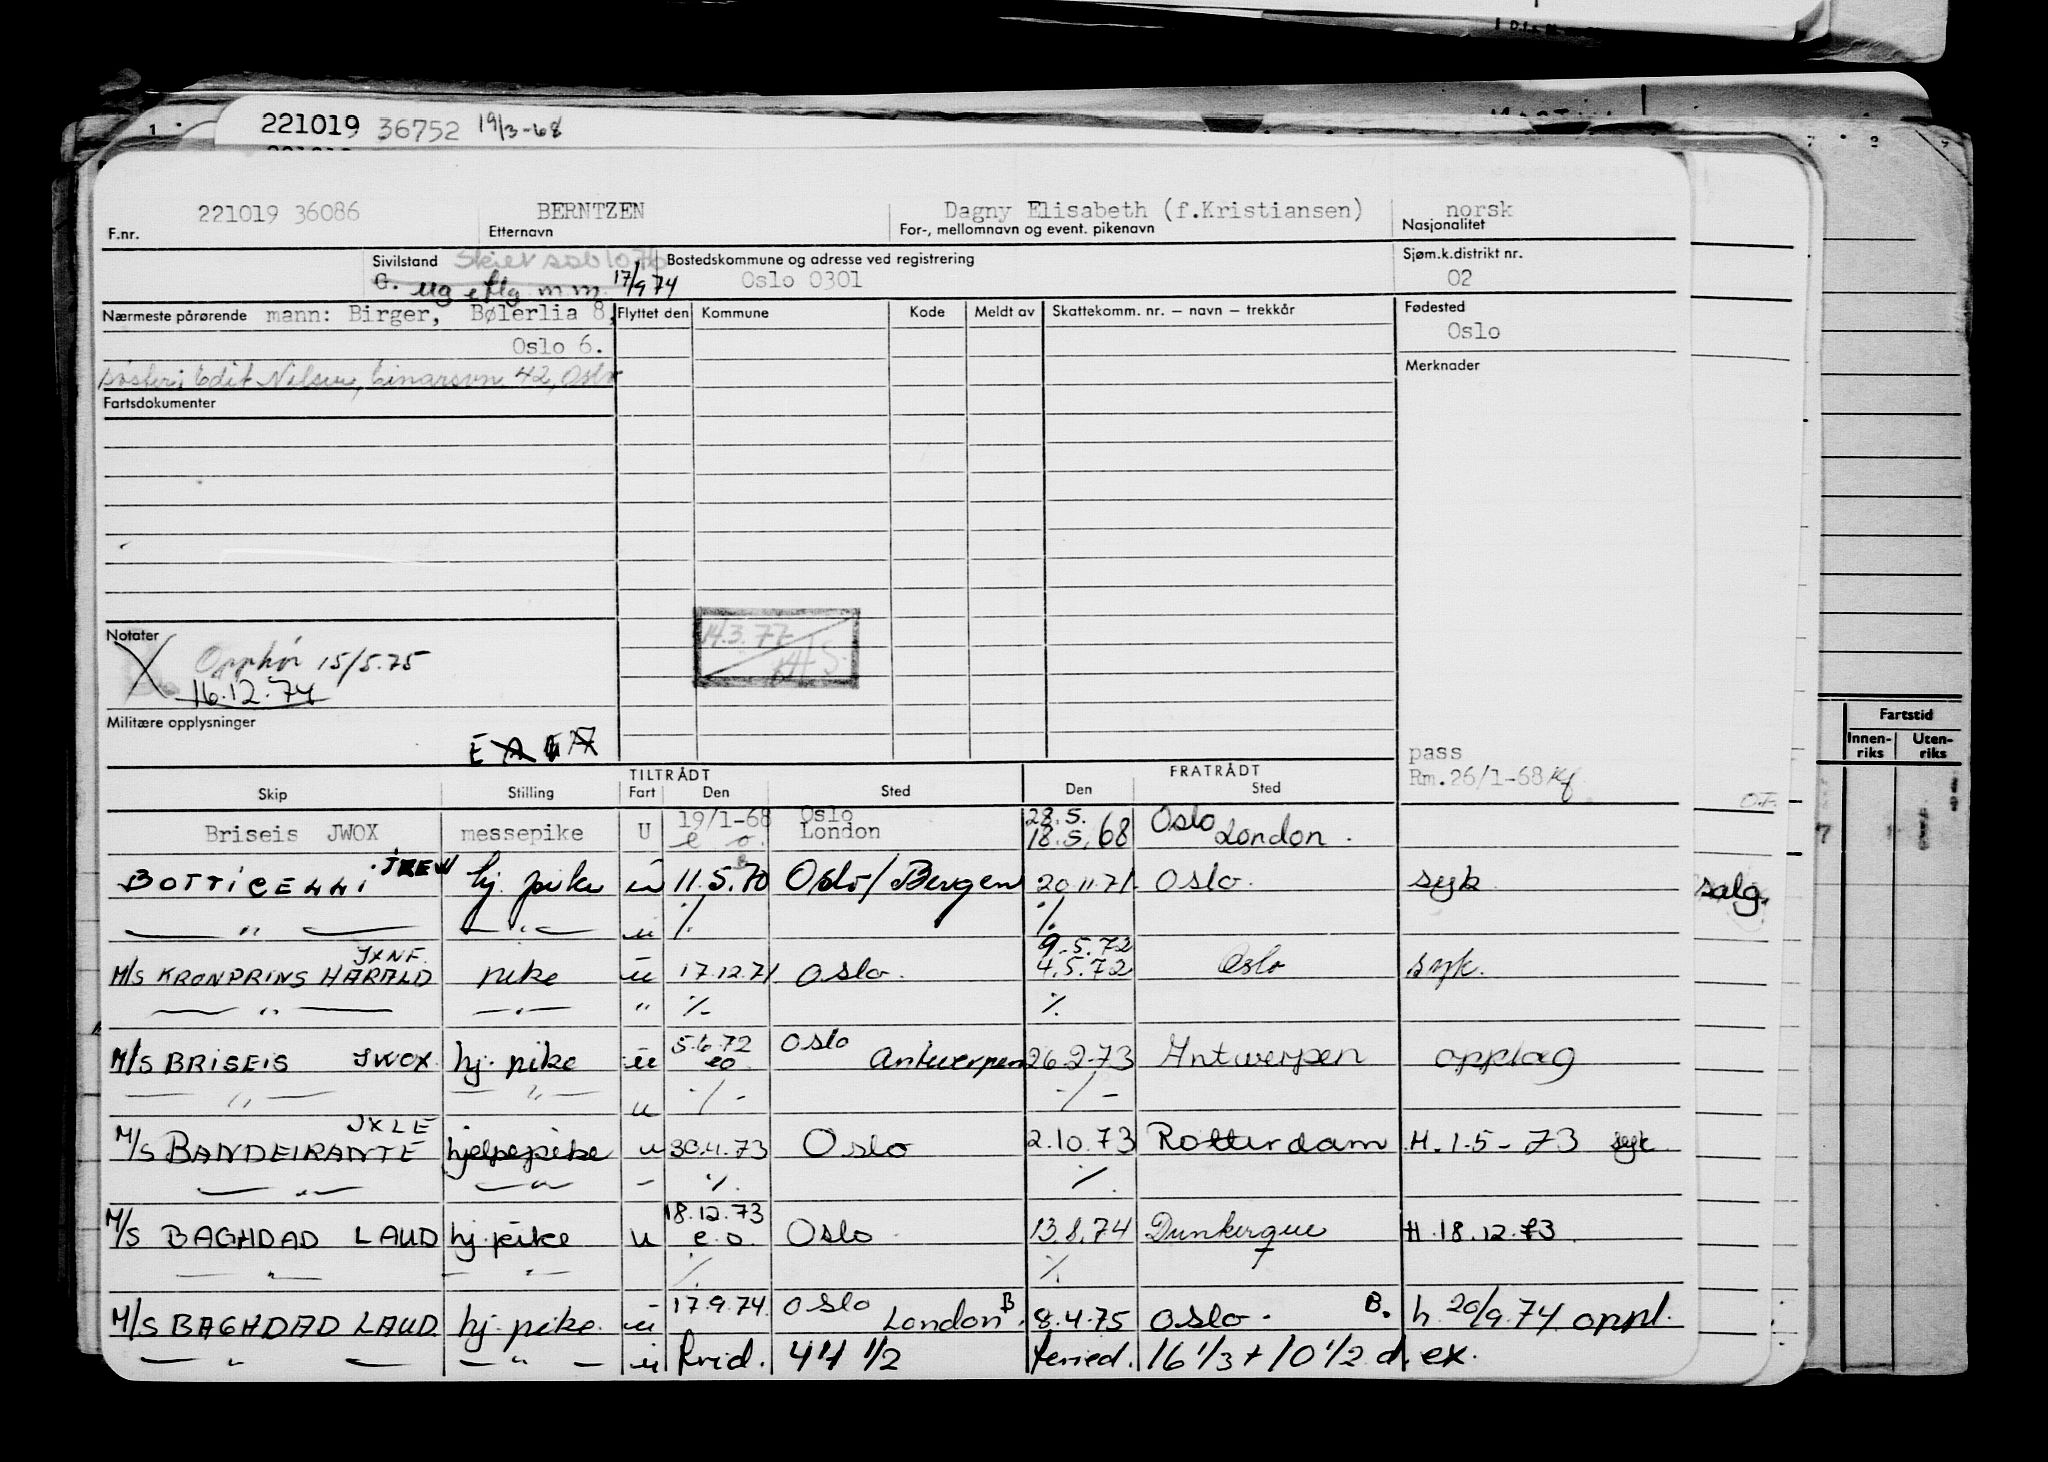 221019 36752 19/3-68
221019 36086 BERNTZEN Dagny Elisabeth (f.Kristiansen) norsk
F.nr. Etternavn For-, mellomnavn og event. pikenavn Nasjonalitet
Sivilstand Bostedskommune og adresse ved registrering Sjøm.k.distrikt nr.
G. ug m.m. 17/9 74 Oslo 0301 02
Nærmeste pårørende mann: Birger, Bølerlia 8, Flyttet den Kommune Kode Meldt av Skattekomm. nr. – navn – trekkår Fødested
Oslo 6. Oslo
søster; Edit Nilsen, Einarsvn 42, Oslo Merknader
Fartsdokumenter
Notater 14.3.77
Opphør 15/5.75
16.12.74
Militære opplysninger
pass
Rm.26/1-68
TILTRÅDT FRATRÅDT
Skip Stilling Fart Den Sted Den Sted
Fartstid
Innen-riks Uten-riks
19/1-68 Oslo 28.5. Oslo
Briseis JWOX messepike U e o. London 18.5.68 London.
BOTTICELLI hj. pike u 11.5.70 Oslo/Bergen 20.11.71. Oslo. syk salg.
— " — — " — u ./. ./.
JXNF. 9.5.72
M/S KRONPRINS HARALD pike u 17.12.71 Oslo. 4.5.72 Oslo syk.
— " — — " — " ./. ./.
5.6.72 Oslo
M/S BRISEIS JWOX. hj. pike u eo Antwerpen 26.2.73 Antwerpen opplag
— " — — " — u -/- -/-
JXLE
M/S BANDEIRANTE hjelpepike u 30.4.73 Oslo 2.10.73 Rotterdam H. 1.5-73 syk
— " — — " — - ./. ./.
18.12.73
M/S BAGHDAD LAUD hj.pike u e.o. Oslo 13.8.74 Dunkerque H.18.12.73.
— " — — " — ./. ./.
17.9.74. Oslo B B.
M/S BAGHDAD LAUD hj. pike. u London. 8.4.75 Oslo. h 20/9.74 oppl.
— " — — " — u frid. 44 1/2 feried. 16 1/3 + 10 1/2 d. ex.